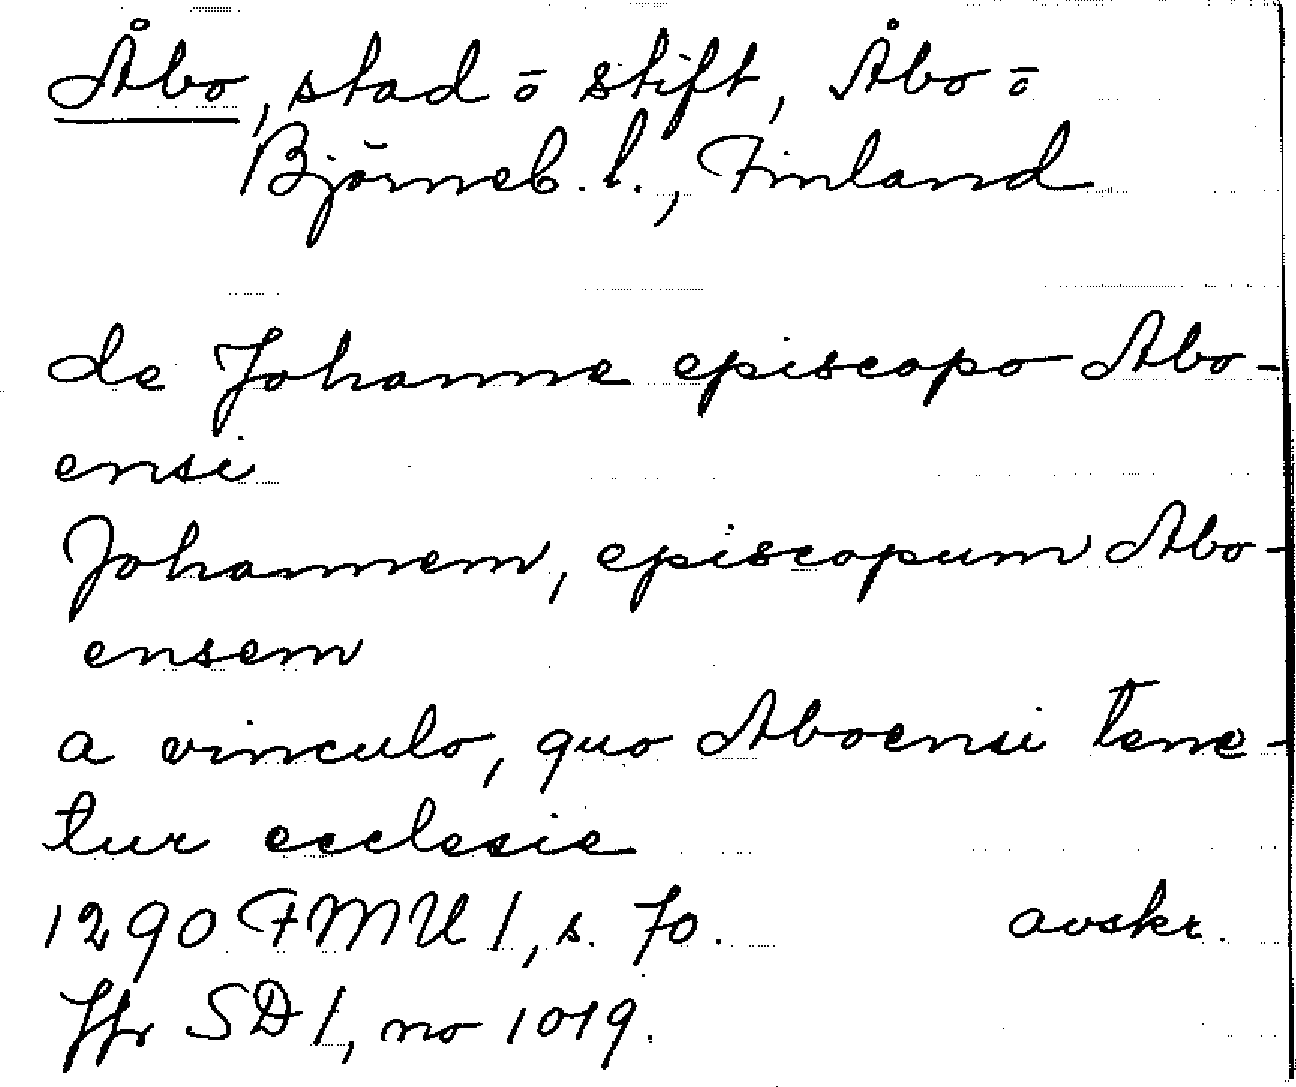 Åbo, stad o̅ stift, Åbo o̅
Björneb. l., Finland
de Johanne episcopo Abo-
ensi
Johannem, episcopum Abo-
ensem
a vinculo, quo Aboensi tene-
tur ecclesie
1290 FMU 1, s. 70. avskr.
Jfr SD 1, no 1019.